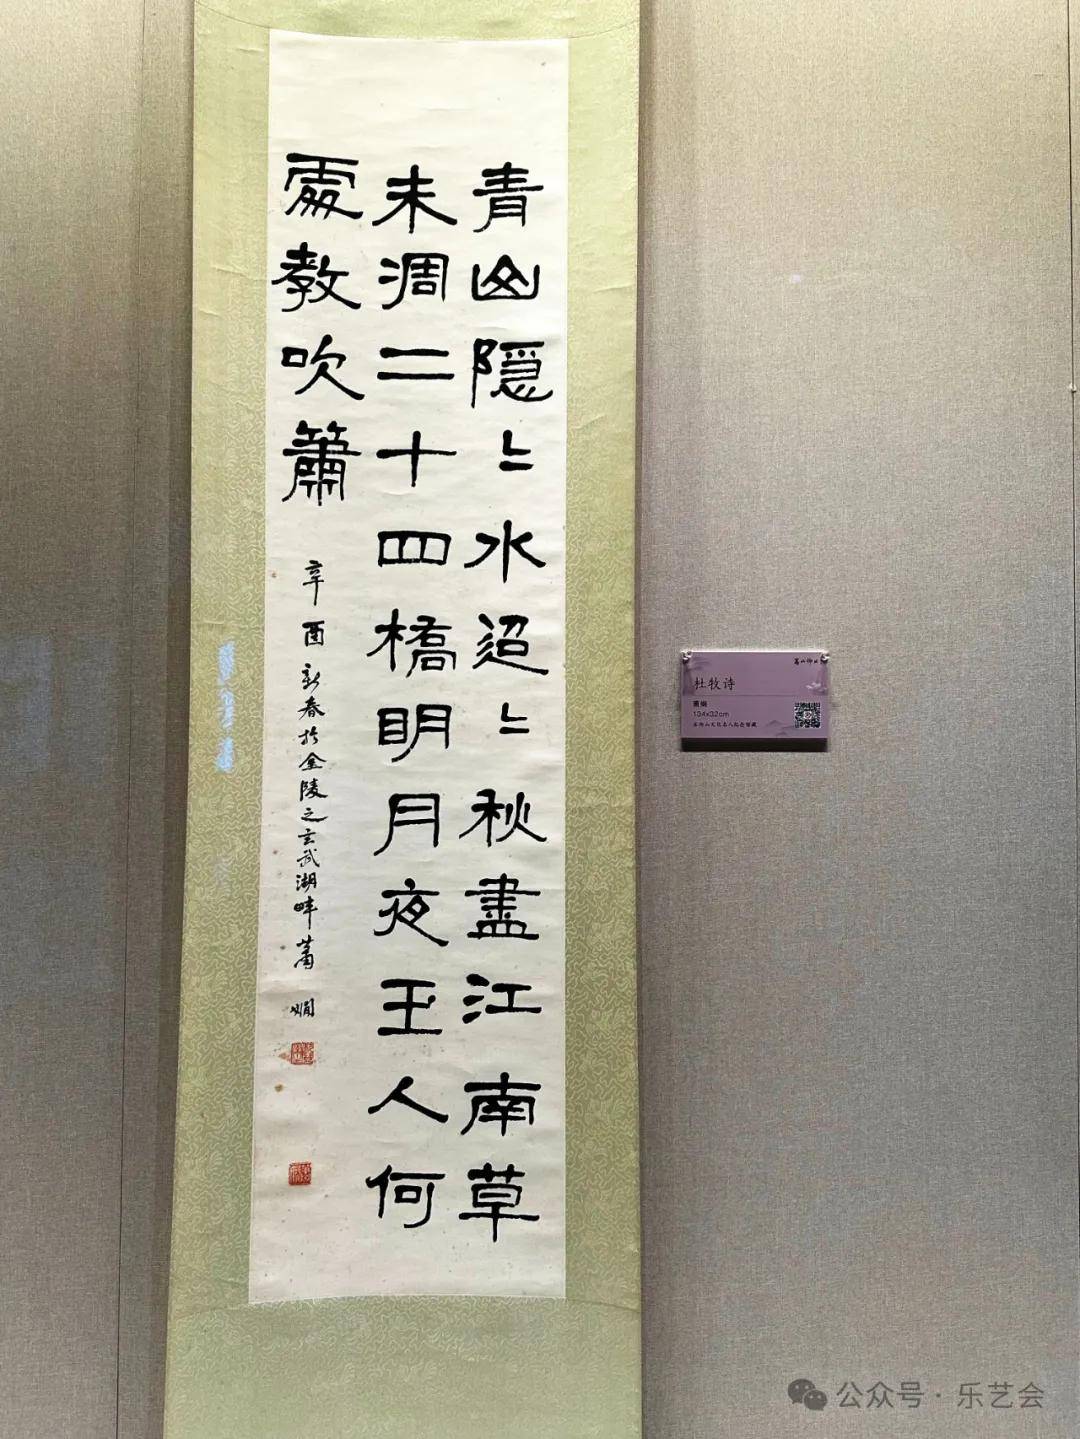 青山隐〻水迢〻秋盡江南草
未凋二十四橋明月夜玉人何
處教吹簫
辛酉新春於金陵之玄武湖畔蕭嫻
杜牧诗
萧娴
134x32cm
公众号·乐艺会